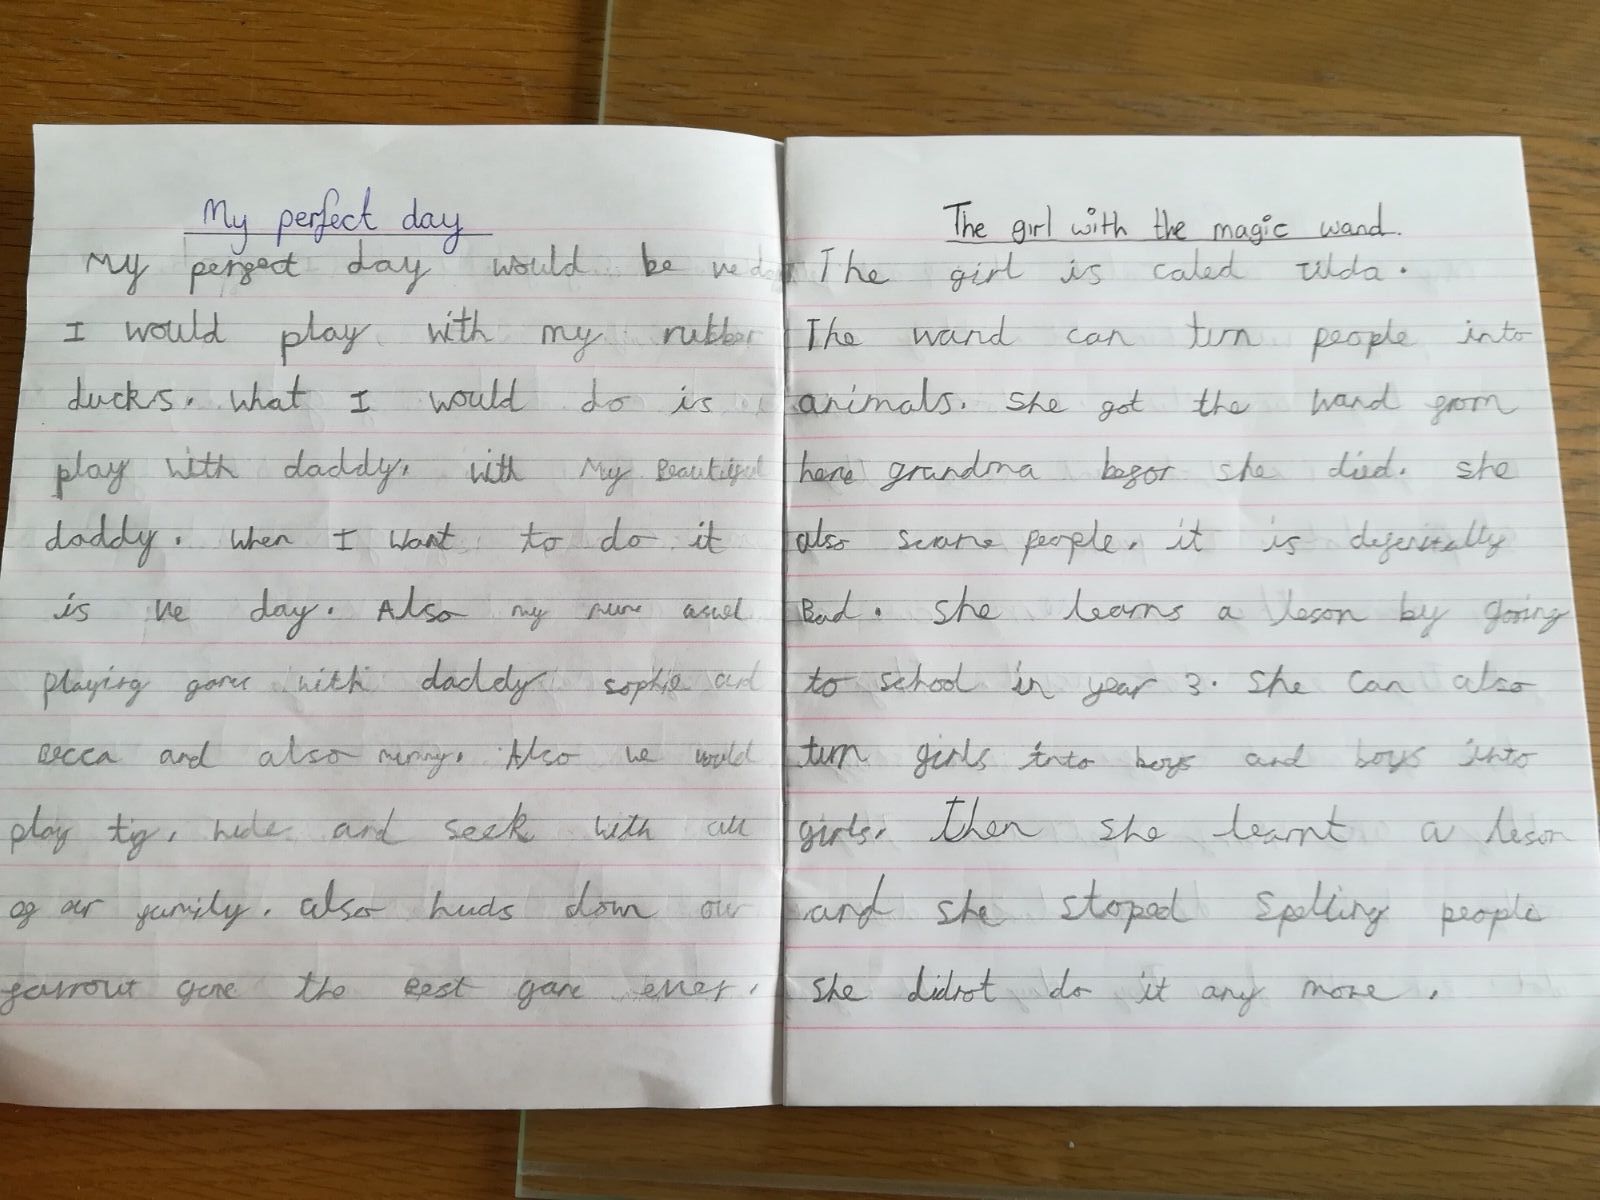 My perfect day
My pergect day would be
I would play with my rubber
ducks. What I would do is
play with daddy. with My Beautigul
daddy. When I want to do it
is ve day. Also my
playing game with daddy sophie and
Becca and also mummy. Also we would
play tig, hide and seek with all
og our gamily. also huds down our
game the Best game ever.
The girl with the magic wand.
The girl is caled Tilda.
The wand can turn people into
animals. She got the wand grom
here grandma begor she died. she
also people. it is degenitally
Bad. She learns a leson by going
to school in year 3. She can also
turn girls into boys and boys into
girls. Then she learnt a leson
and she stoped spelling people
she didnot do it any more.